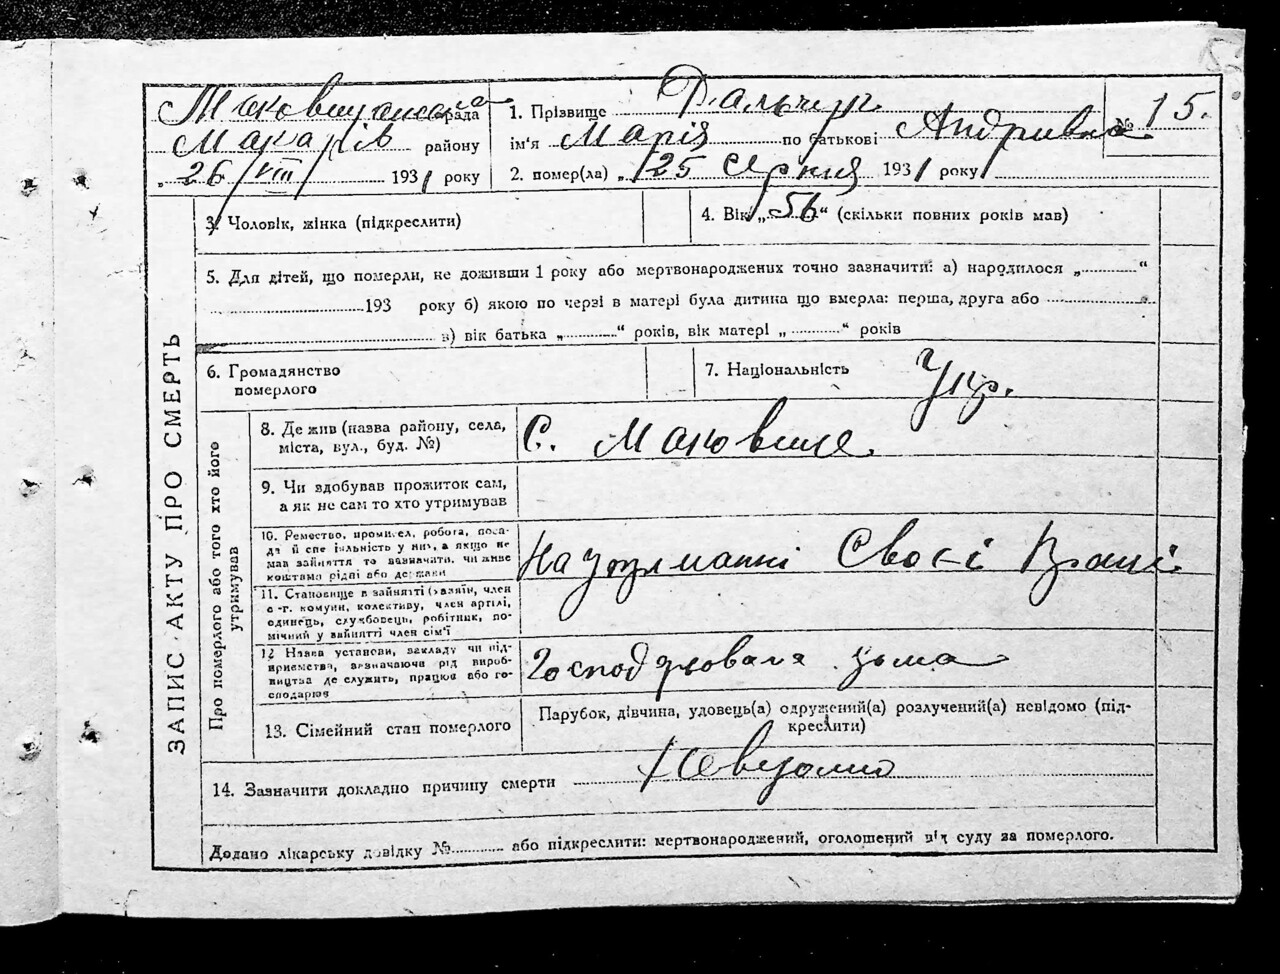 15
Маковищанська рада
Макарів району
„ 26/VIII 1931 року
1. Прізвище Дальчук
ім'я Марія по батькові Андривна
№ 15.
2. помер(ла) „ 25 Серпня 1931 року
ЗАПИС АКТУ ПРО СМЕРТЬ
3. Чоловік, жінка (підкреслити)
4. Вік „ 56 “ (скільки повних років мав)
5. Для дітей, що померли, не доживши 1 року або мертвонароджених точно зазначити: а) народилося „............“
............193 року б) якою по черзі в матері була дитина що вмерла: перша, друга або ............
............ в) вік батька „............“ років, вік матері „............“ років
6. Громадянство
померлого
7. Національність Укр.
Про померлого або того хто його
утримував
8. Де жив (назва району, села,
міста, вул., буд. №)
С. Маковище
9. Чи здобував прожиток сам,
а як не сам то хто утримував
10. Ремество, промисел, робота, поса-
да й спеціяльність у них, а якщо не
мав зайняття то зазначити, чи живе
коштами рідні або держави
На утриманні Своєї
11. Становище в зайнятті (хазяїн, член
с.-г. комуни, колективу, член артілі,
одинець, службовець, робітник, по-
мічний у зайнятті член сім'ї
12 Назва установи, закладу чи під-
приємства, зазначаючи рід вироб-
ництва де служить, працює або го-
сподарює
Господарювала дома
13. Сімейний стан померлого
Парубок, дівчина, удовець(а) одружений(а) розлучений(а) невідомо (під-
креслити)
14. Зазначити докладно причину смерти Невідомо
Додано лікарську довідку №............ або підкреслити: мертвонароджений, оголошений від суду за померлого.